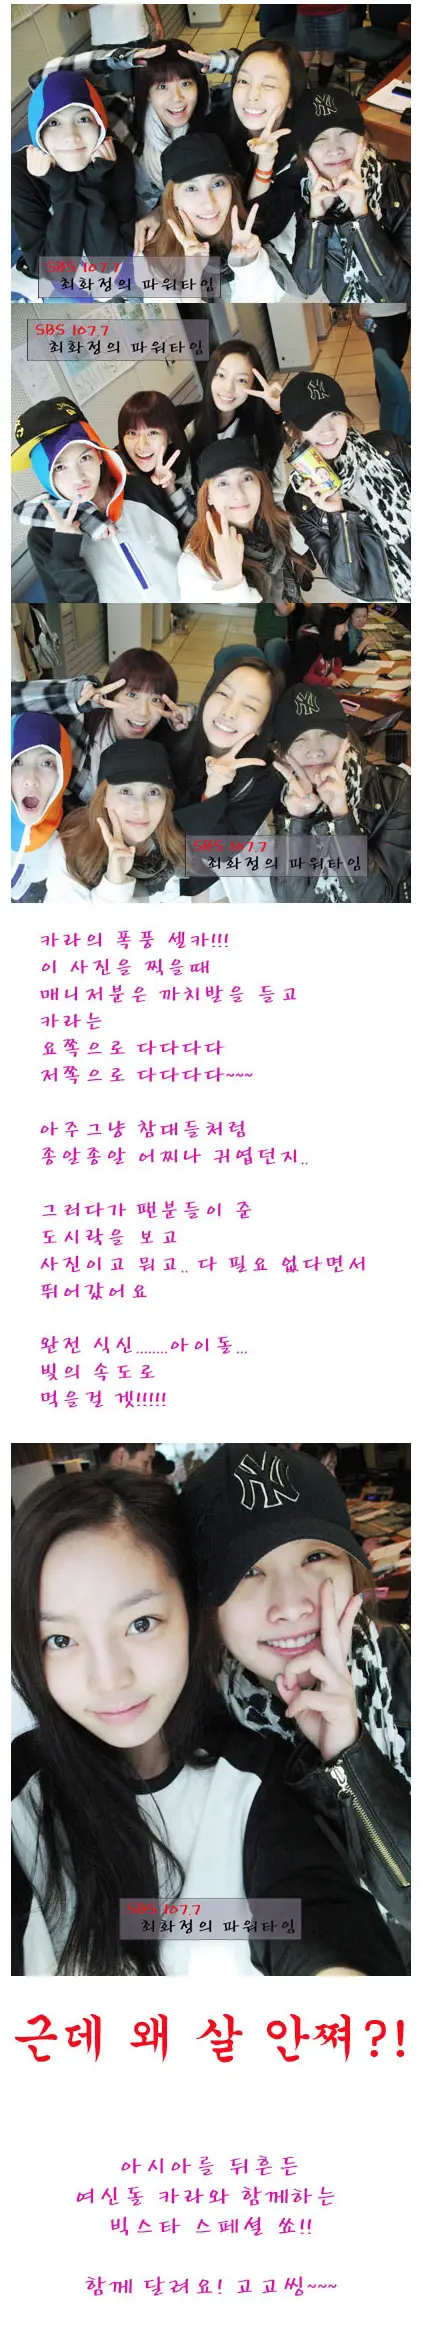 SBS 107.7
최화정의 파워타임
SBS 107.7
최화정의 파워타임
SBS 107.7
최화정의 파워타임
카라의 폭풍 셀카!!!
이 사진을 찍을때
매니저분은 까치발을 들고
카라는
요쪽으로 다다다다
저쪽으로 다다다다~~~
아주그냥 참대들처럼
종알종알 어찌나 귀엽던지..
그러다가 팬분들이 준
도시락을 보고
사진이고 뭐고.. 다 필요 없다면서
뛰어갔어요
완전 식신........아이돌...
빛의 속도로
먹을걸 겟!!!!!
SBS 107.7
최화정의 파워타임
근데 왜 살 안쪄?!
아시아를 뒤흔든
여신돌 카라와 함께하는
빅스타 스페셜 쑈!!
함께 달려요! 고고씽~~~